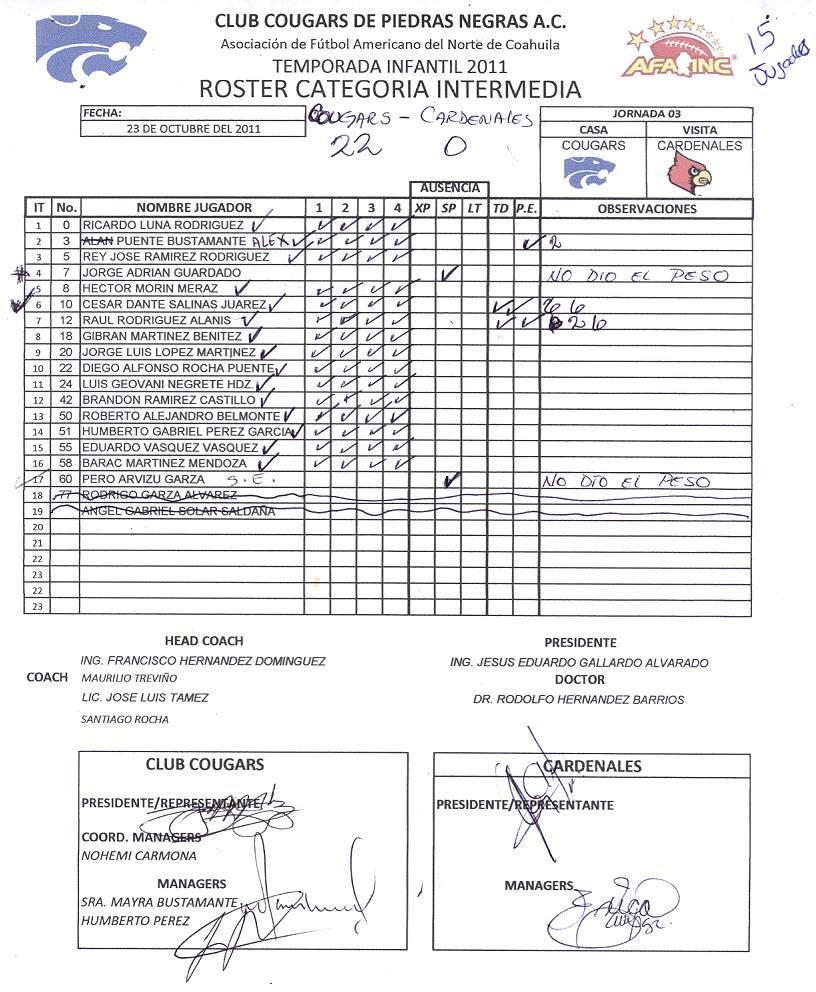 CLUB COUGARS DE PIEDRAS NEGRAS A.C.
Asociación de Fútbol Americano del Norte de Coahuila
TEMPORADA INFANTIL 2011
ROSTER CATEGORIA INTERMEDIA
AFAINC
15
Jugadores
FECHA:
23 DE OCTUBRE DEL 2011
COUGARS - CARDENALES
22 0
JORNADA 03
CASA VISITA
COUGARS CARDENALES
AUSENCIA
IT No. NOMBRE JUGADOR 1 2 3 4 XP SP LT TD P.E. OBSERVACIONES
1 0 RICARDO LUNA RODRIGUEZ ✓ ✓ ✓ ✓ ✓
2 3 ALAN PUENTE BUSTAMANTE ALEX ✓ ✓ ✓ ✓ ✓ ✓ 2
3 5 REY JOSE RAMIREZ RODRIGUEZ ✓ ✓ ✓ ✓ ✓
4 7 JORGE ADRIAN GUARDADO ✓ NO DIO EL PESO
5 8 HECTOR MORIN MERAZ ✓ ✓ ✓ ✓ ✓
6 10 CESAR DANTE SALINAS JUAREZ ✓ ✓ ✓ ✓ ✓ ✓✓ 6 6
7 12 RAUL RODRIGUEZ ALANIS ✓ ✓ ✓ ✓ ✓ ✓ ✓ 2 6
8 18 GIBRAN MARTINEZ BENITEZ ✓ ✓ ✓ ✓ ✓
9 20 JORGE LUIS LOPEZ MARTINEZ ✓ ✓ ✓ ✓ ✓
10 22 DIEGO ALFONSO ROCHA PUENTE ✓ ✓ ✓ ✓ ✓
11 24 LUIS GEOVANI NEGRETE HDZ. ✓ ✓ ✓ ✓ ✓
12 42 BRANDON RAMIREZ CASTILLO ✓ ✓ ✓ ✓ ✓
13 50 ROBERTO ALEJANDRO BELMONTE ✓ ✓ ✓ ✓ ✓
14 51 HUMBERTO GABRIEL PEREZ GARCIA ✓ ✓ ✓ ✓ ✓
15 55 EDUARDO VASQUEZ VASQUEZ ✓ ✓ ✓ ✓ ✓
16 58 BARAC MARTINEZ MENDOZA ✓ ✓ ✓ ✓ ✓
17 60 PERO ARVIZU GARZA S.E. ✓ NO DIO EL PESO
18 77 RODRIGO GARZA ALVAREZ
19 ANGEL GABRIEL SOLAR SALDAÑA
20
21
22
23
22
23
HEAD COACH
ING. FRANCISCO HERNANDEZ DOMINGUEZ
COACH MAURILIO TREVIÑO
LIC. JOSE LUIS TAMEZ
SANTIAGO ROCHA
PRESIDENTE
ING. JESUS EDUARDO GALLARDO ALVARADO
DOCTOR
DR. RODOLFO HERNANDEZ BARRIOS
CLUB COUGARS
PRESIDENTE/REPRESENTANTE
COORD. MANAGERS
NOHEMI CARMONA
MANAGERS
SRA. MAYRA BUSTAMANTE
HUMBERTO PEREZ
CARDENALES
PRESIDENTE/REPRESENTANTE
MANAGERS